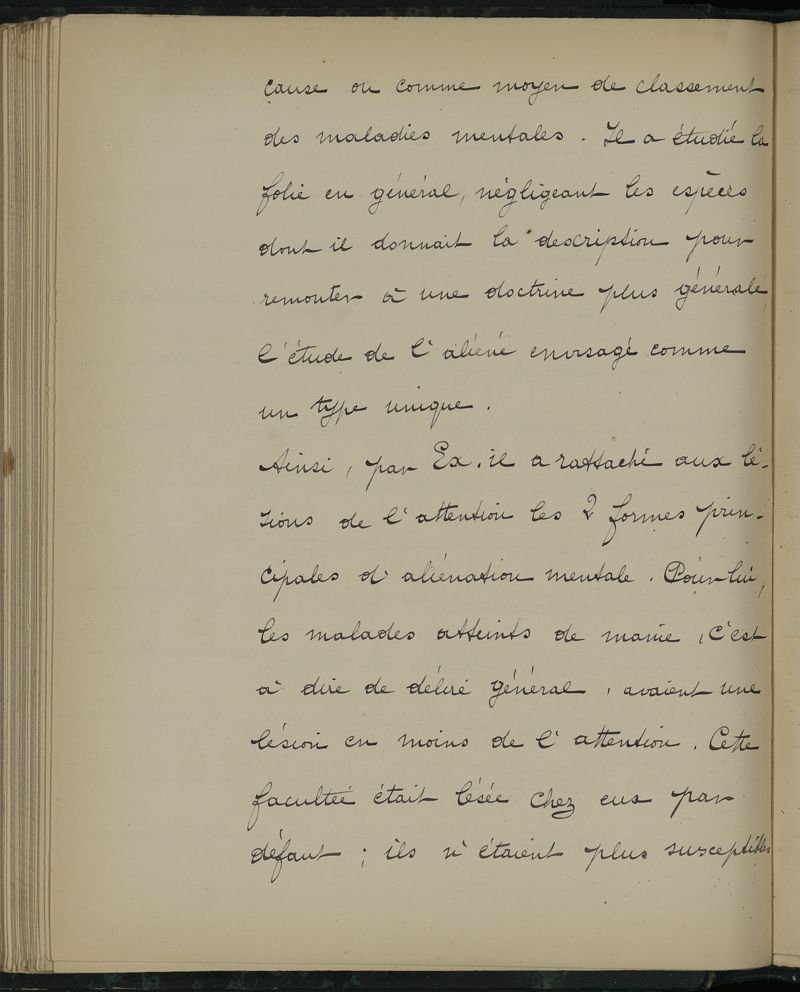 cause ou comme moyen de classement
des maladies mentales. Il a étudié la
folie en général, négligeant les espèces
dont il donnait la description pour
remonter à une doctrine plus générale,
l'étude de l'aliéné envisagé comme
un type unique.
Ainsi, par Ex. il a rattaché aux lé-
sions de l'attention les 2 formes prin-
cipales d'aliénation mentale. Pour lui,
les malades atteints de manie, c'est
à dire de délire général, avaient une
lésion en moins de l'attention. Cette
facultée était lésée chez eux par
défaut ; ils n'étaient plus susceptibles